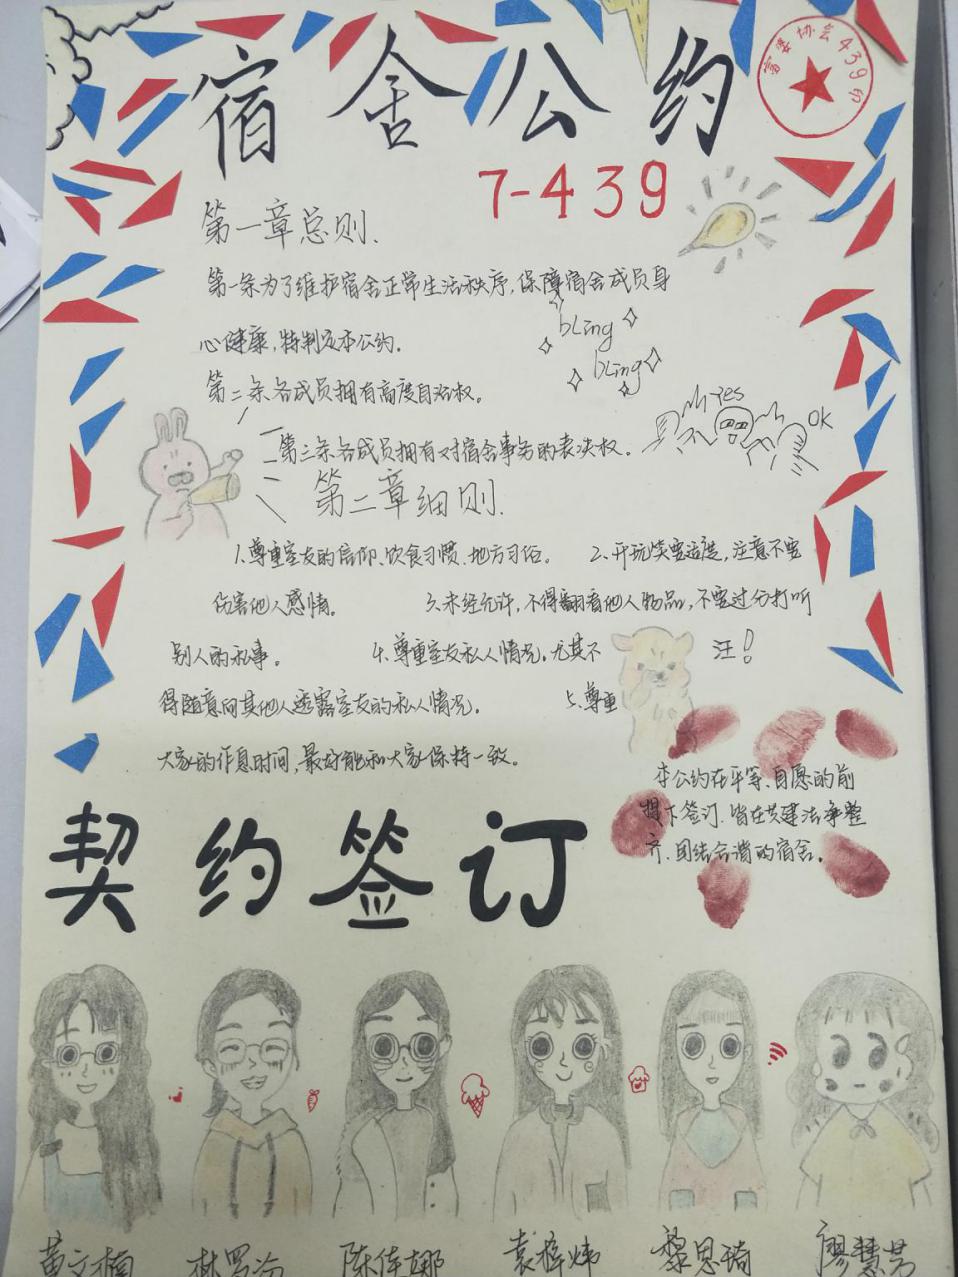 宿舍公约
富婆协会439印
7-439
第一章总则.
第一条为了维护宿舍正常生活秩序,保障宿舍成员身
心健康,特制定本公约.
bling
bling
第二条各成员拥有高度自治权。
yes
OK
第三条各成员拥有对宿舍事务的表决权.
第二章细则.
1.尊重室友的信仰、饮食习惯、地方习俗。 2.开玩笑要适度,注意不要
伤害他人感情。 3.未经允许,不得翻看他人物品,不要过分打听
别人的私事。 4.尊重室友私人情况.尤其不
汪!
得随意向其他人透露室友的私人情况。 5.尊重
大家的作息时间,最好能和大家保持一致。
本公约在平等、自愿的前
提下签订.皆在共建洁净整
齐、团结合谐的宿舍。
契约签订
黄文楠 陈佳娜 袁梓炜 黎思琦 廖慧芳